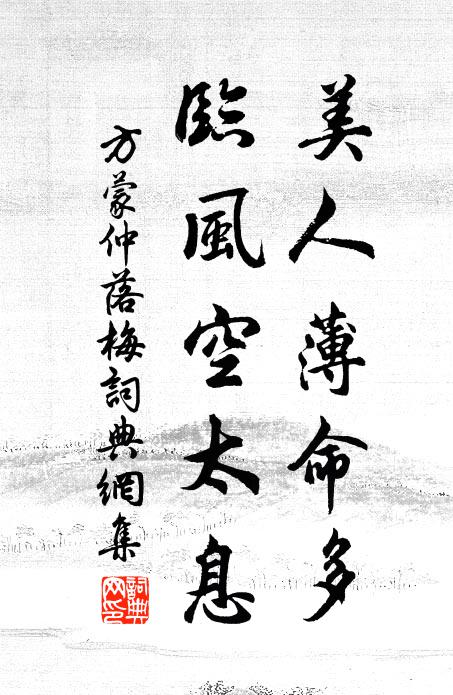 美人薄命多
臨風空太息
方蒙仲落梅詞典網集
詞典網印